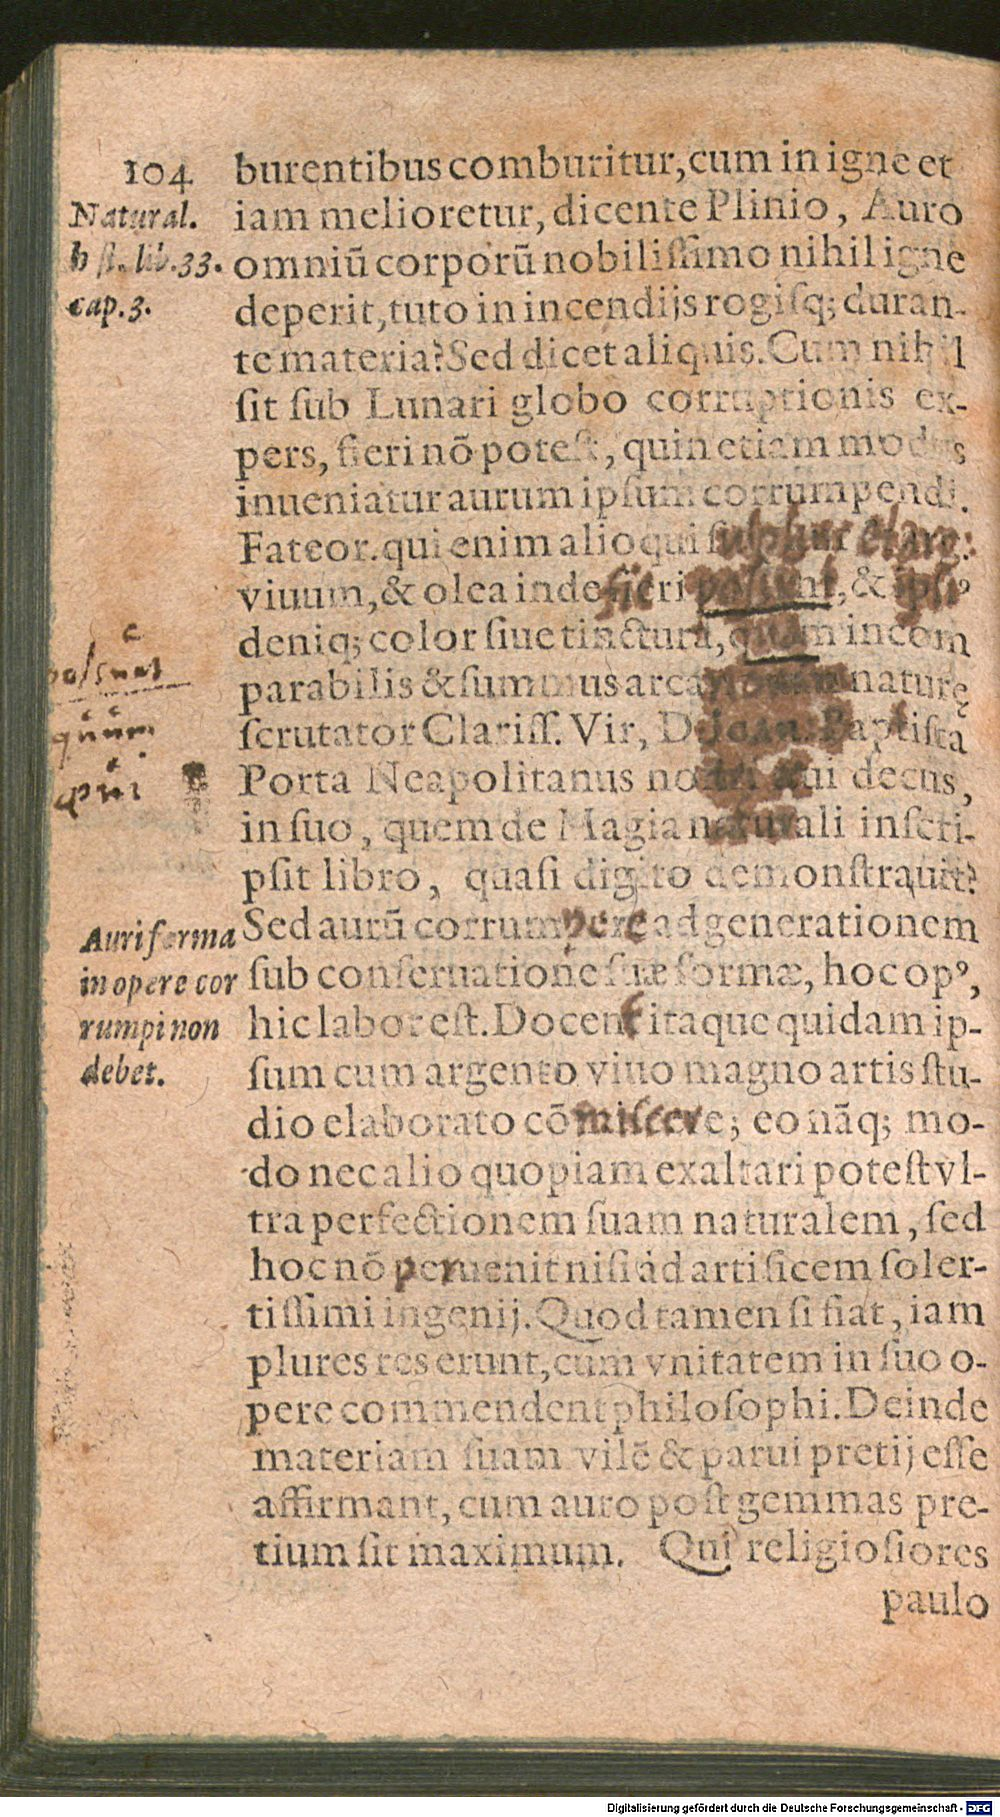 104
burentibus comburitur, cum in igne et
iam melioretur, dicente Plinio, Auro
omniū corporū nobilissimo nihil igne
deperit, tuto in incendijs rogisq; duran-
te materia? Sed dicet aliquis. Cum nihil
sit sub Lunari globo corruptionis ex-
pers, fieri nō potest, quin etiam modus
inueniatur aurum ipsum corrumpendi.
Fateor. qui enim alioqui sulphur et arg:
viuum, & olea inde fieri possent, & ipsiꝰ
deniq; color siue tinctura, quam incom
parabilis & summus arcanorum naturę
scrutator Clariss. Vir, D. Ioan. Baptista
Porta Neapolitanus nostri æui decus,
in suo, quem de Magia naturali inscri-
psit libro, quasi digito demonstrauit?
Sed aurū corrumpere ad generationem
sub conseruatione suæ formæ, hoc opꝰ,
hic labor est. Docent itaque quidam ip-
sum cum argento viuo magno artis stu-
dio elaborato cōmiscere; eo nāq; mo-
do nec alio quopiam exaltari potest vl-
tra perfectionem suam naturalem, sed
hoc nō peruenit nisi ad artificem soler-
tissimi ingenij. Quod tamen si fiat, iam
plures res erunt, cum vnitatem in suo o-
pere commendent philosophi. Deinde
materiam suam vilē & parui pretij esse
affirmant, cum auro post gemmas pre-
tium sit maximum. Qui religiosiores
paulo
Natural.
hist. lib. 33.
cap. 3.
Auri forma
in opere cor
rumpi non
debet.